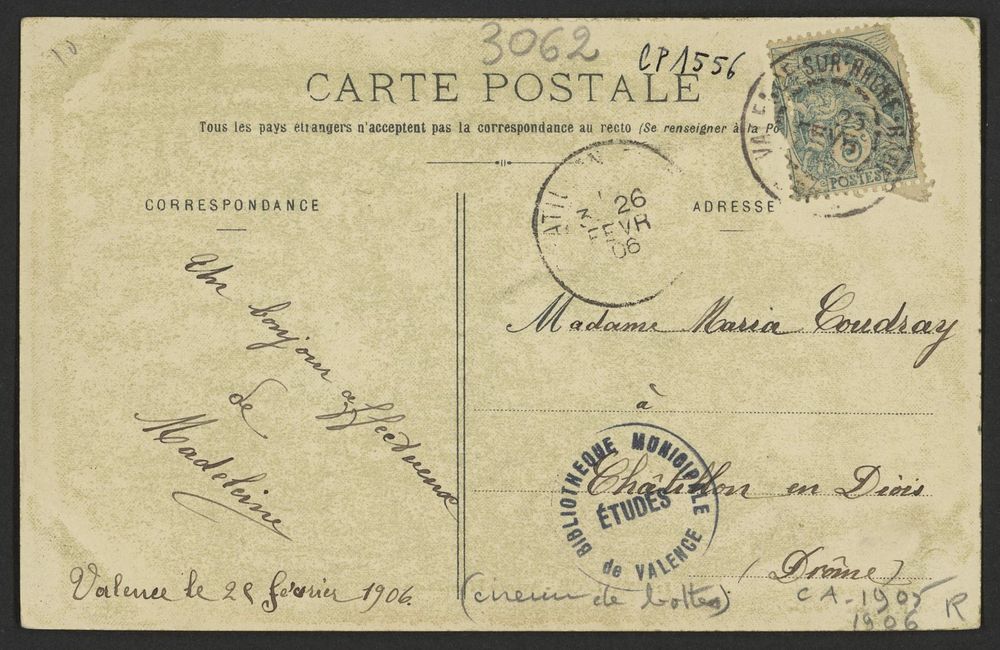 3062
CP 1556
CARTE POSTALE
Tous les pays étrangers n'acceptent pas la correspondance au recto (Se renseigner à la Po
CORRESPONDANCE
ADRESSE
26
FEVR
06
POSTES
Un bonjour affectueux
de
Madeleine
Valence le février 1906.
Madame Maria Coudray
à
Châtillon en Diois
(Drôme)
BIBLIOTHEQUE MUNICIPALE
ÉTUDES
de VALENCE
de
CA-1905
1906
R